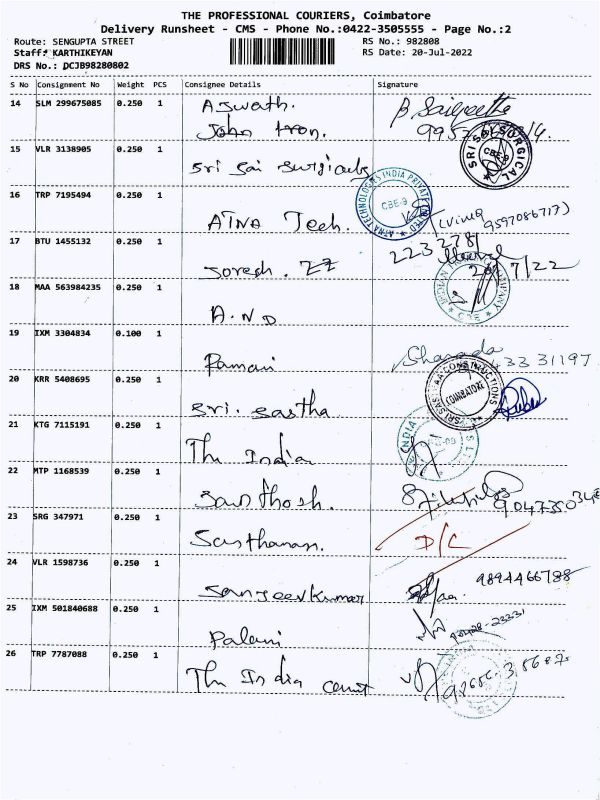 THE PROFESSIONAL COURIERS, Coimbatore
Delivery Runsheet - CMS - Phone No.:0422-3505555 - Page No.:2
Route: SENGUPTA STREET
RS No.: 982808
Staff: KARTHIKEYAN
RS Date: 20-Jul-2022
DRS No.: DCJB98280802
S No Consignment No Weight PCS Consignee Details Signature
14 SLM 299675085 0.250 1 Aswath.
John
15 VLR 3138905 0.250 1 Sri Sai Surgicals
SRI SAI SURGICAL
CBE-9
16 TRP 7195494 0.250 1 ATNA Tech.
ATNA TECHNOLOGIES INDIA PRIVATE LIMITED
CBE-9
9597086717)
17 BTU 1455132 0.250 1 Soresh. ZZ
223278
18 MAA 563984235 0.250 1 A.N.D
7/22
COMPANY
19 IXM 3304834 0.100 1 Ramani
Sharada
433 31197
20 KRR 5408695 0.250 1 Sri. Sastha
CONSTRUCTIONS
COIMBATORE
21 KTG 7115191 0.250 1 The India
INDIA
22 MTP 1168539 0.250 1 Santhosh.
23 SRG 347971 0.250 1 Santhanam.
D/C
24 VLR 1598736 0.250 1 Sanjeevkumar
9894466788
25 IXM 501840688 0.250 1 Palani
26 TRP 7787088 0.250 1 The India Cemt